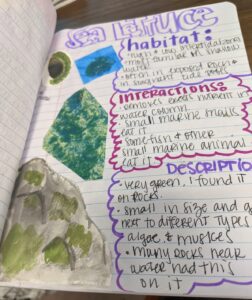 Sea lettuce
habitat:
high & low intertidal zones
small found in shallow
water
often in exposed rocks &
in stagnant tide pools
Interactions:
removes excess nutrient in
water column
small marine snails
eat it
some fish & other
small marine animal
eat it
Description
very green. I found it
on rocks.
small in size and
next to different types
algae &
many rocks near
water had this
on it